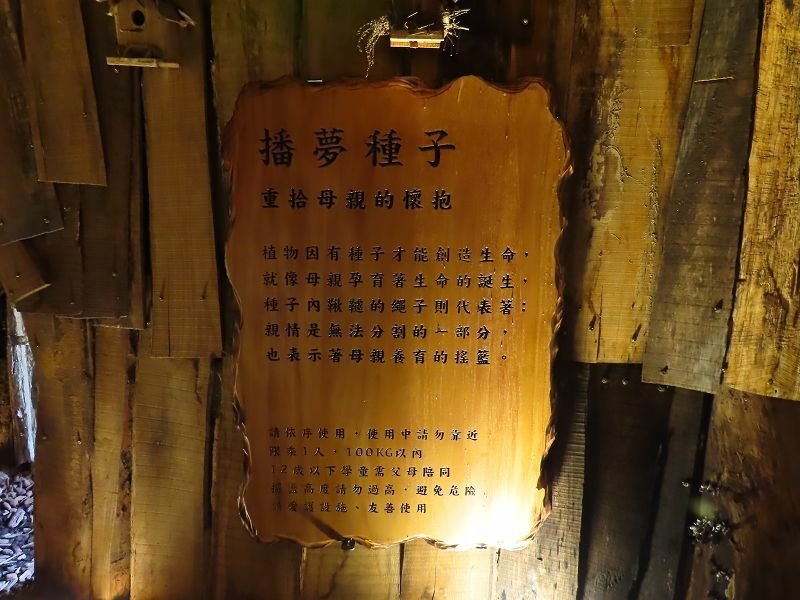 播夢種子
重拾母親的懷抱
植物因有種子才能創造生命，
就像母親孕育著生命的誕生，
種子內鞦韆的繩子則代表著：
親情是無法分割的一部分，
也表示著母親養育的搖籃。
請依序使用，使用中請勿靠近
限乘1人，100KG以內
12歲以下學童需父母陪同
擺盪高度請勿過高，避免危險
請愛護設施、友善使用